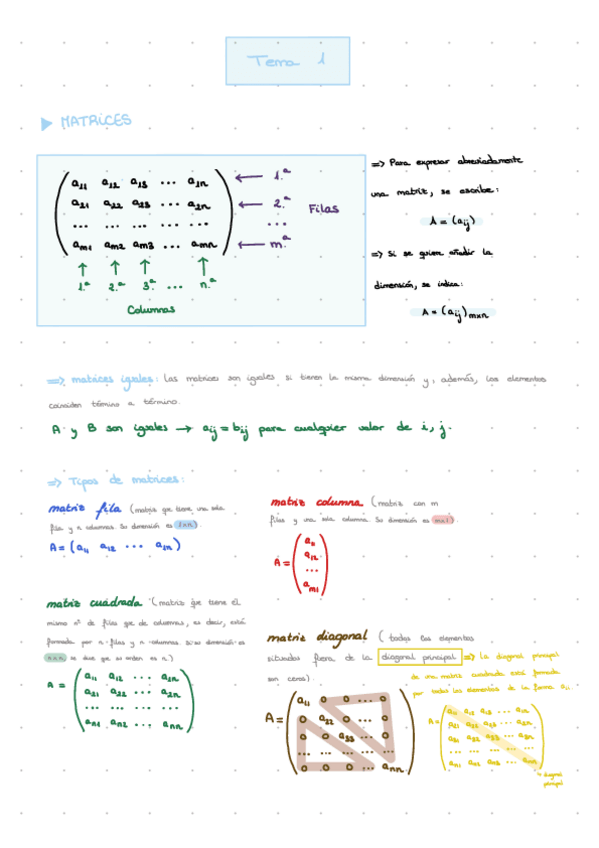 Tema 1
▶ MATRICES
a11 a12 a13 ... a1n ← 1.ª
a21 a22 a23 ... a2n ← 2.ª Filas
... ... ... ... ... ...
am1 am2 am3 ... amn ← m.ª
↑ ↑ ↑ ↑
1.ª 2.ª 3.ª ... n.ª
Columnas
=> Para expresar abreviadamente
una matriz, se escribe:
A = (aij)
=> Si se quiere añadir la
dimensión, se indica:
A = (aij)mxn
=> matrices iguales: Las matrices son iguales si tienen la misma dimensión y, además, los elementos
coinciden término a término.
A y B son iguales → aij = bij para cualquier valor de i, j.
=> Tipos de matrices:
matriz fila (matriz que tiene una sola
fila y n columnas. Su dimensión es 1xn).
A = (a11 a12 ... a1n)
matriz columna (matriz con m
filas y una sola columna. Su dimensión es mx1).
a11
a12
A =
...
am1
matriz cuadrada (matriz que tiene el
mismo nº de filas que de columnas, es decir, está
formada por n-filas y n-columnas. Si su dimensión es
nxn se dice que su orden es n.)
a11 a12 ... a1n
A = a21 a22 ... a2n
... ... ... ...
an1 an2 ... ann
matriz diagonal (todos los elementos
situados fuera de la diagonal principal
son ceros).
a11 0 0 ... 0
A = 0 a22 0 ... 0
0 0 a33 ... 0
... ... ... ... ...
0 0 0 ... ann
=> La diagonal principal
de una matriz cuadrada está formada
por todos los elementos de la forma aii.
a11 a12 a13 ... a1n
A = a21 a22 a23 ... a2n
a31 a32 a33 ... a3n
... ... ... ... ...
an1 an2 an3 ... ann
diagonal
principal